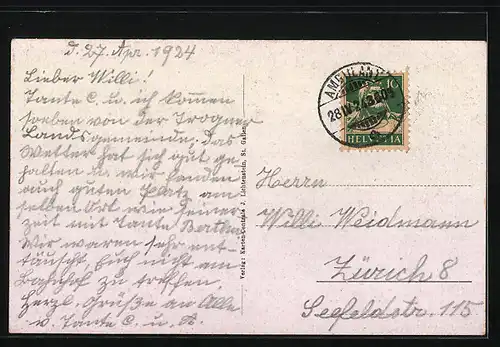 d. 27. Apr. 1924
Lieber Willi!
Tante C. u. ich komen
soeben von der Trogner
Landsgemeinde. Das
Wetter hat sich gut ge-
halten u. wir fanden
auch guten Platz am
selben Ort wie seiner-
zeit mit Tante Bertha.
Wir waren sehr ent-
täuscht, Euch nicht am
Bahnhof zu treffen.
Herzl. Grüße an Alle
v. Tante C. u. A.
Verlag: Karten-Centrale J. Lichtenstein, St. Gallen
AMBULANT
28.IV.24
10
HELVETIA
Herrn
Willi Weidmann
Zürich 8
Seefeldstr. 115